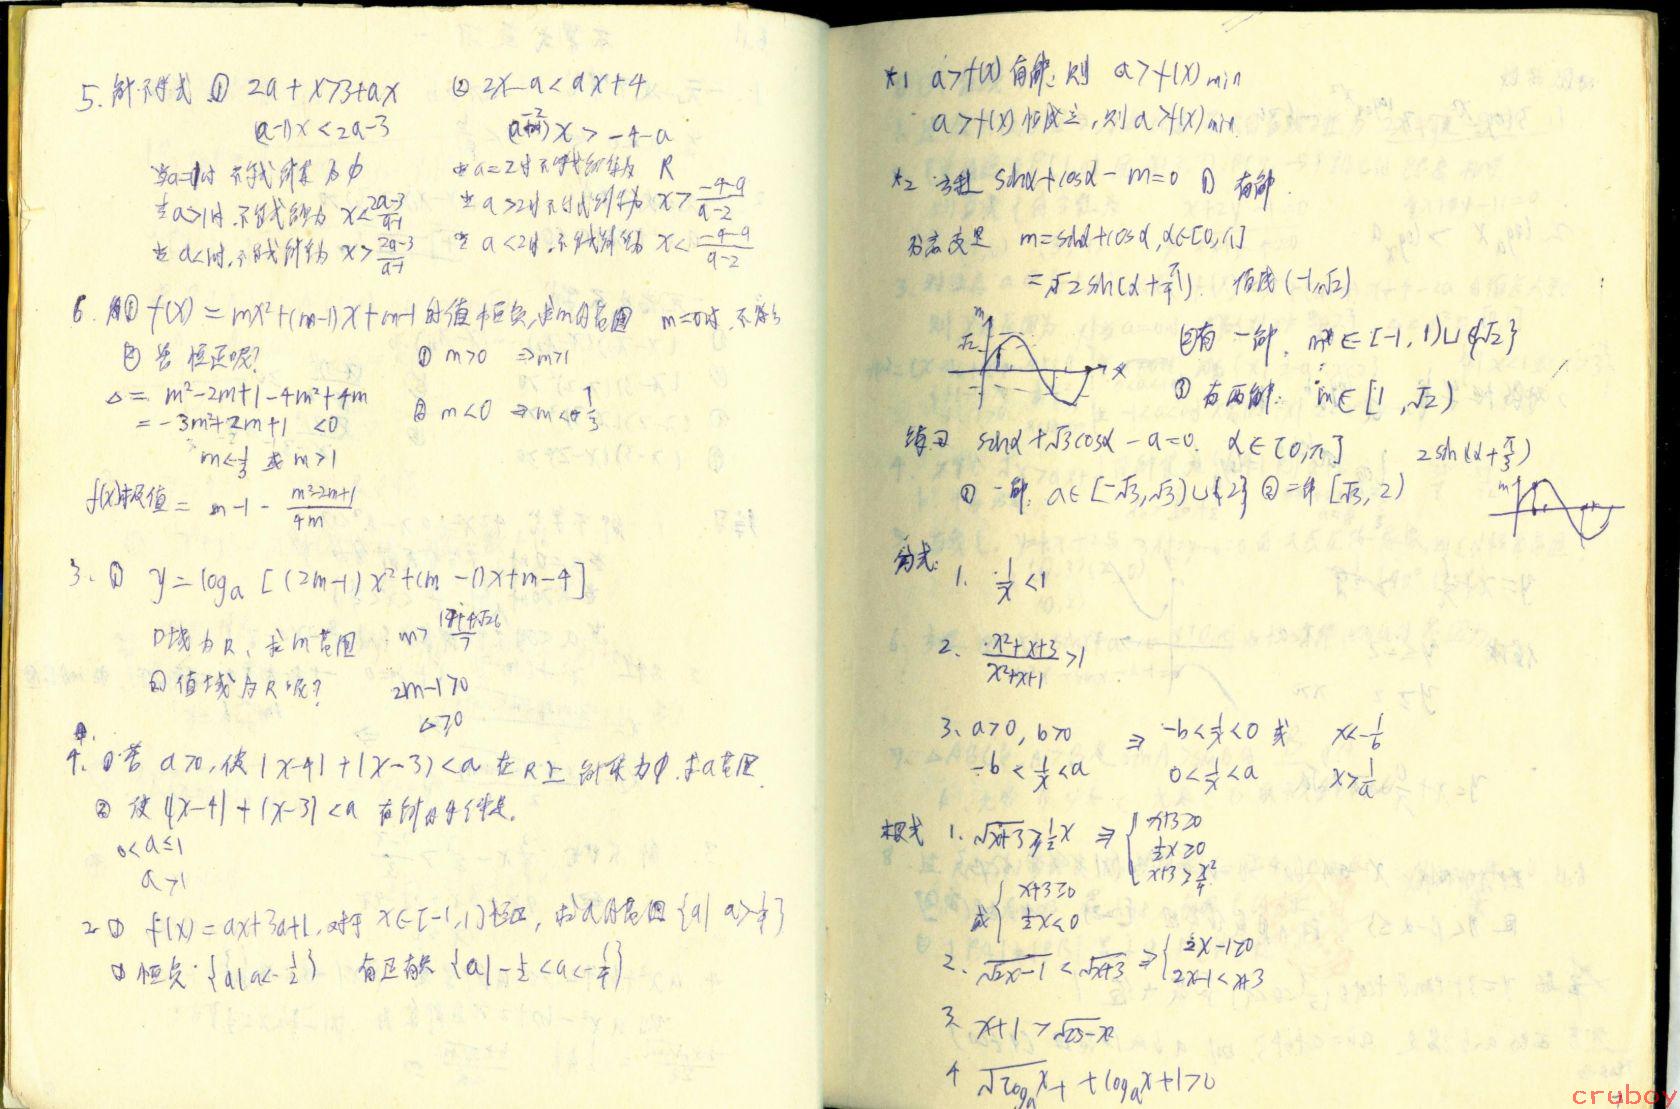 5. 解不等式 ① 2a+x>3+ax ② 2x-a<ax+4
(a-1)x<2a-3 (a-2)x>-4-a
当a=1时 不等式解集为φ 当a=2时不等式解集为 R
当a>1时,不等式解为 x<\frac{2a-3}{a-1} 当a>2时不等式解集为 x>\frac{-4-a}{a-2}
当a<1时,不等式解集为 x>\frac{2a-3}{a-1} 当a<2时,不等式解集为 x<\frac{-4-a}{a-2}
6. ① f(x)=mx²+(m-1)x+m-1的值恒负,求m的范围 m=0时,不
② 若恒正呢? ① m>0 ⇒m>1
△= m²-2m+1-4m²+4m ② m<0 ⇒m<-\frac{1}{3}
=-3m²+2m+1 <0
m<-\frac{1}{3} 或 m>1
f(x)极值= m-1-\frac{m²-2m+1}{4m}
3. ① y=log_a[(2m-1)x²+(m-1)x+m-4]
D域为R,求m范围 m>
② 值域为R呢? 2m-1>0
△≥0
4. ①若 a>0,使|x-4|+|x-3|<a 在R上解集为φ.求a范围.
② 使|x-4|+|x-3|<a 有解的条件是.
0<a≤1
a>1
2. ① f(x)=ax+3a+1,对于x∈[-1,1]恒正,求a的范围{a| a>-\frac{1}{4}}
② 恒负:{a|a<-\frac{1}{2}} 有正有负 {a|-\frac{1}{2}<a<-\frac{1}{4}}
*1 a>f(x)有解,则 a>f(x)min
a>f(x)恒成立,则a>f(x)min
*2 方程 sinα+cosα-m=0 ① 有解.
m=sinα+cosα,α∈[0,π]
=√2sin(α+\frac{π}{4}). 值域(-1,√2)
m
√2
x
②有一解. m∈[-1,1)∪{√2}
③ 有两解: m∈[1,√2)
练习 sinα+√3cosα-a=0. α∈[0,π] 2sin(α+\frac{π}{3})
① 一解: a∈[-√3,√3)∪{2} ②二解[√3,2)
m
分式: 1. \frac{1}{x}<1
2. \frac{x²+x+3}{x²+x+1}>1
3. a>0, b>0 ⇒ -b<\frac{1}{x}<0 或 x<-\frac{1}{b}
-b<\frac{1}{x}<a 0<\frac{1}{x}<a x>\frac{1}{a}
根式 1. √(x+3)>\frac{1}{2}x ⇒ { x+3≥0
\frac{1}{2}x≥0
x+3>\frac{x²}{4}
或{ x+3≥0
\frac{1}{2}x<0
2. √(2x-1)<√(x+3) ⇒{ 2x-1≥0
2x-1<x+3
3. x+1>√(25-x²)
4 +log_a x+1>0
cruboy